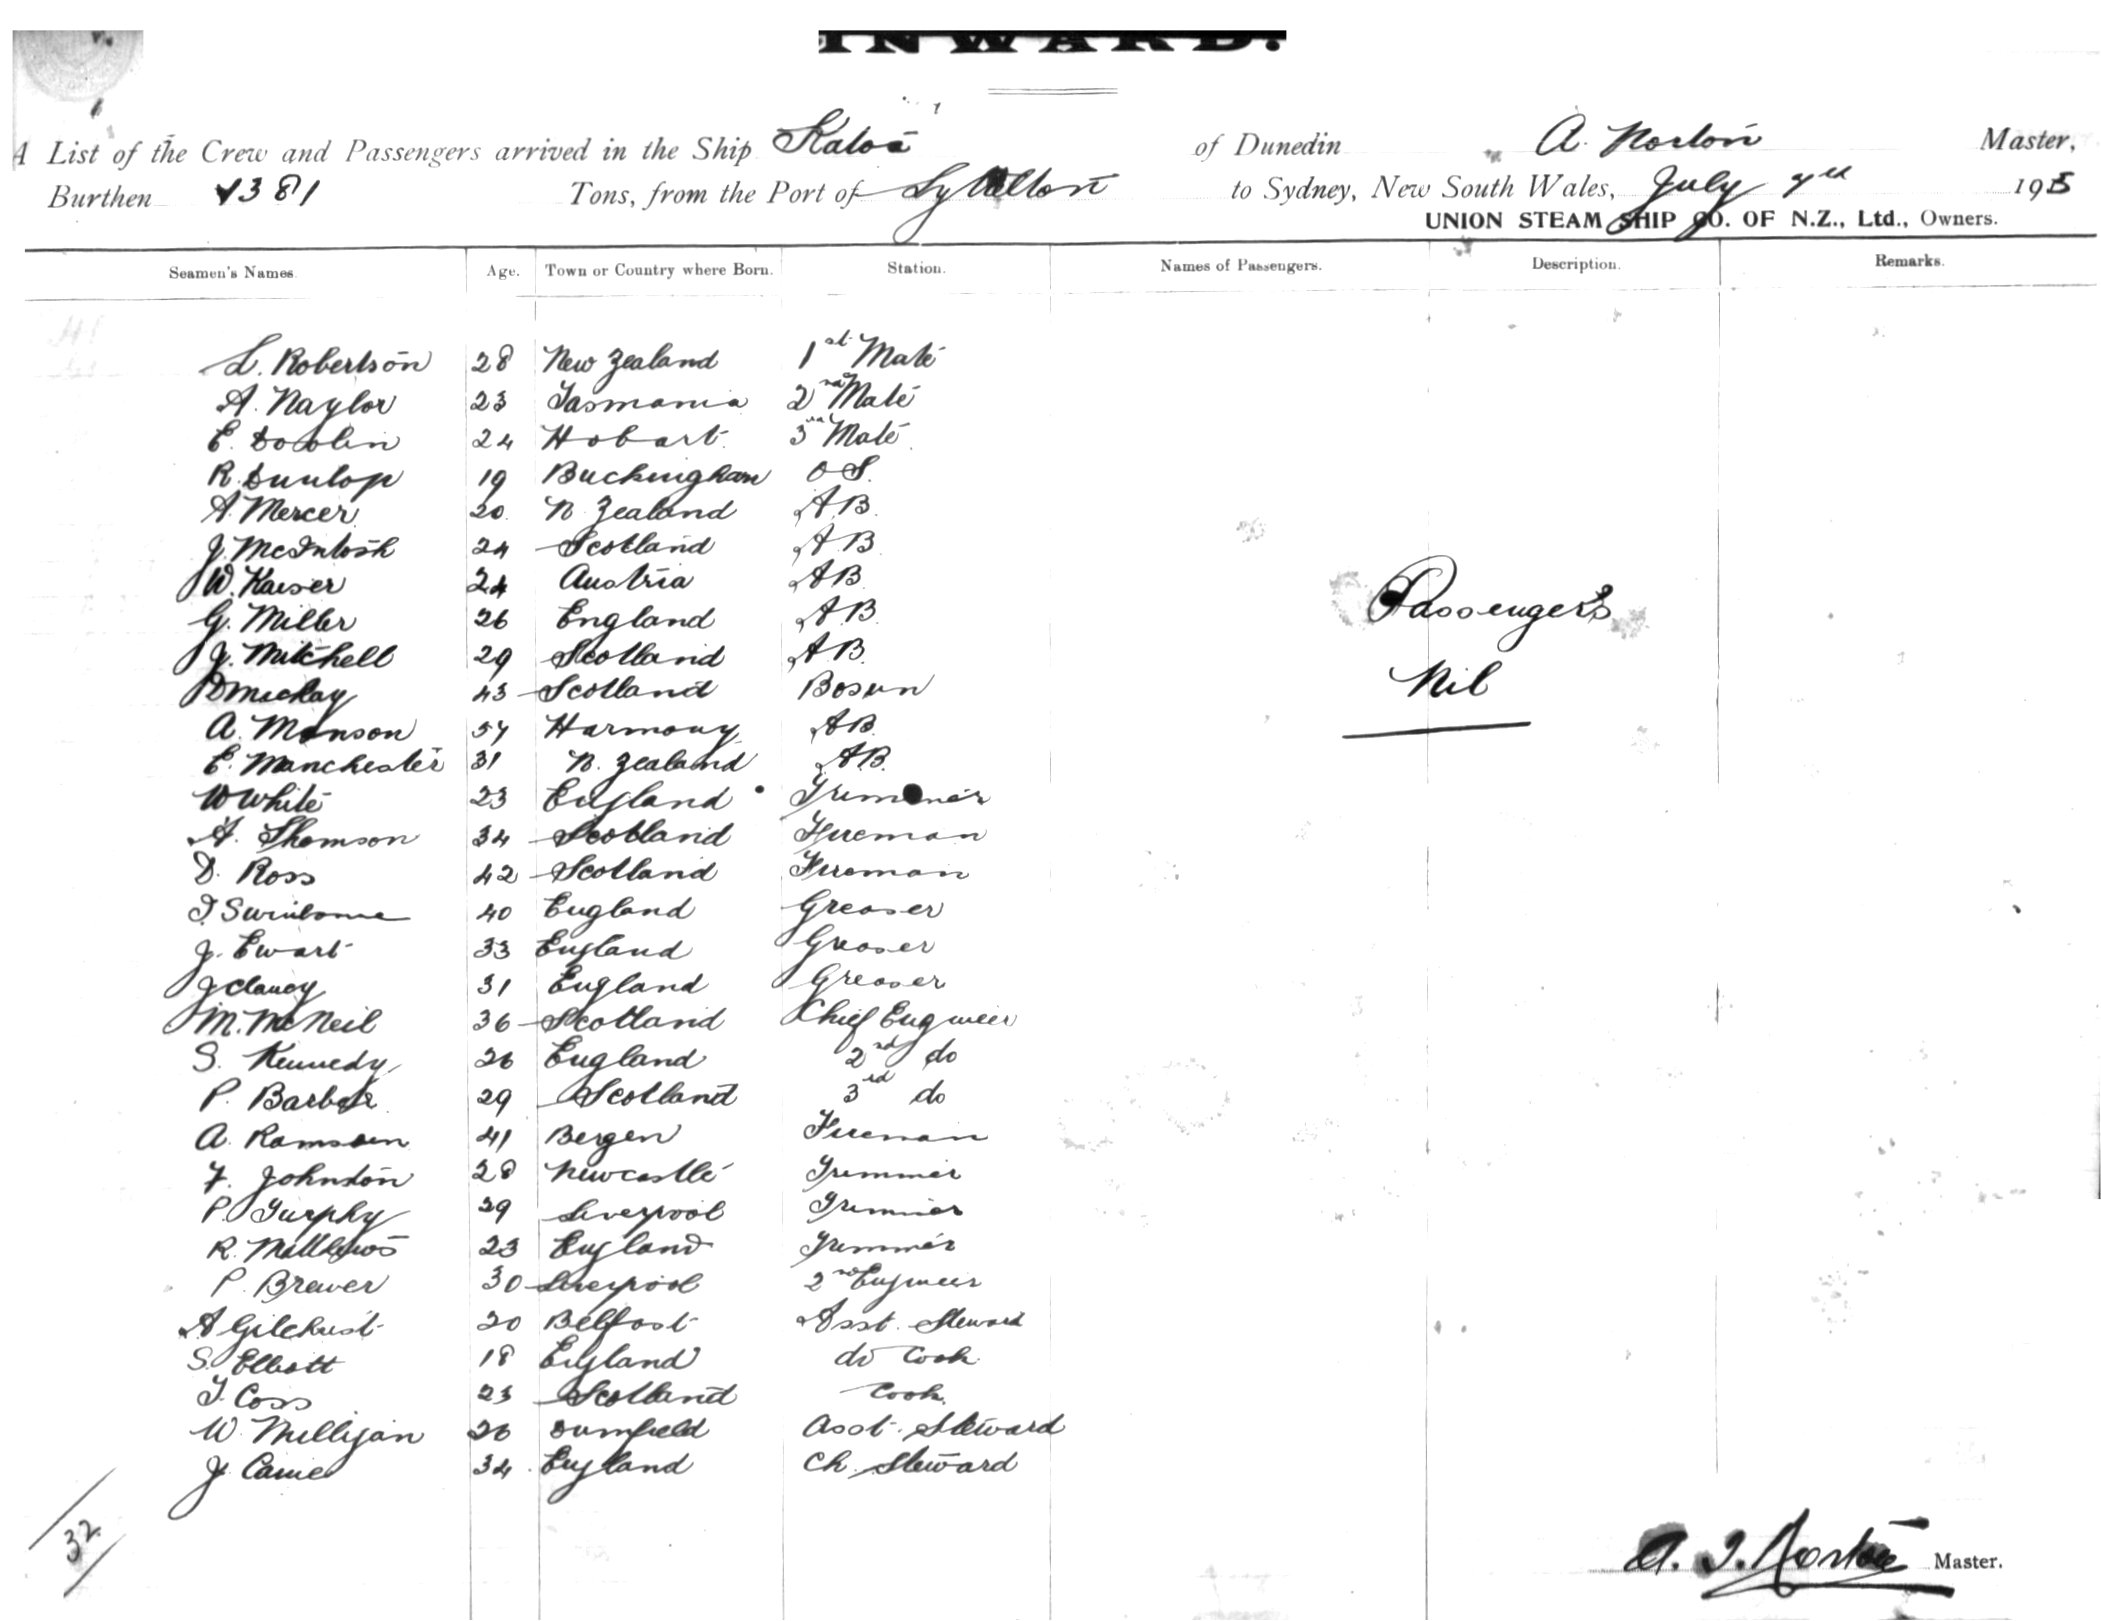 INWARD.
A List of the Crew and Passengers arrived in the Ship Katoa of Dunedin A. Norton Master,
Burthen 1381 Tons, from the Port of Lyttelton to Sydney, New South Wales, July 7th 1915
UNION STEAM SHIP CO. OF N.Z., Ltd., Owners.
Seamen's Names. Age. Town or Country where Born. Station. Names of Passengers. Description. Remarks.
L. Robertson 28 New Zealand 1st Mate
A. Naylor 23 Tasmania 2nd Mate
E. 24 Hobart 3rd Mate
R. Dunlop 19 Buckingham O S.
A. Mercer 20 N. Zealand A.B.
J. McIntosh 24 Scotland A.B.
W. Kaiser 24 Austria A.B.
G. Miller 26 England A.B.
J. Mitchell 29 Scotland A.B.
D McKay 43 Scotland Bosun
A. Monson 57 Harmony A.B.
E. Manchester 31 N. Zealand A.B.
W White 23 England Trimmer
A. Thomson 34 Scotland Fireman
D. Ross 42 Scotland Fireman
40 England Greaser
J. Ewart 33 England Greaser
J Clancy 31 England Greaser
M. McNeil 36 Scotland Chief Engineer
S. Kennedy 26 England 2nd do
P. Barber 29 Scotland 3rd do
A. 41 Bergen Fireman
F. Johnston 28 Newcastle Trimmer
P. 29 Liverpool Trimmer
R. Matthews 23 England Trimmer
P. Brewer 30 Liverpool 2nd Engineer
A Gilchrist 20 Belfast Asst. Steward
S. Elliott 18 England do Cook
T. Coss 23 Scotland Cook.
W. Milligan 26 Asst. Steward
J. 34 England Ch. Steward
Passengers
Nil
32
A. J. Norton Master.